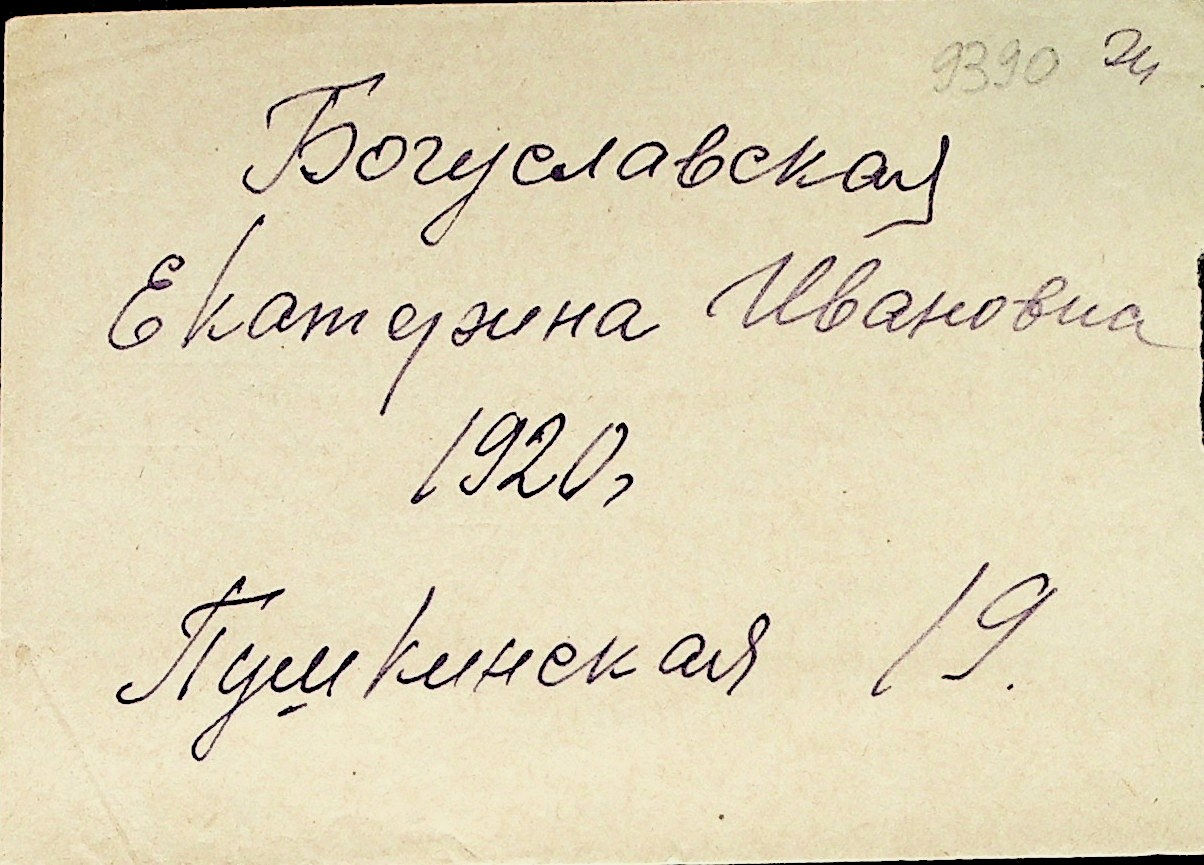 9390
Богуславская
Екатерина Ивановна
1920г
Пушкинская 19.